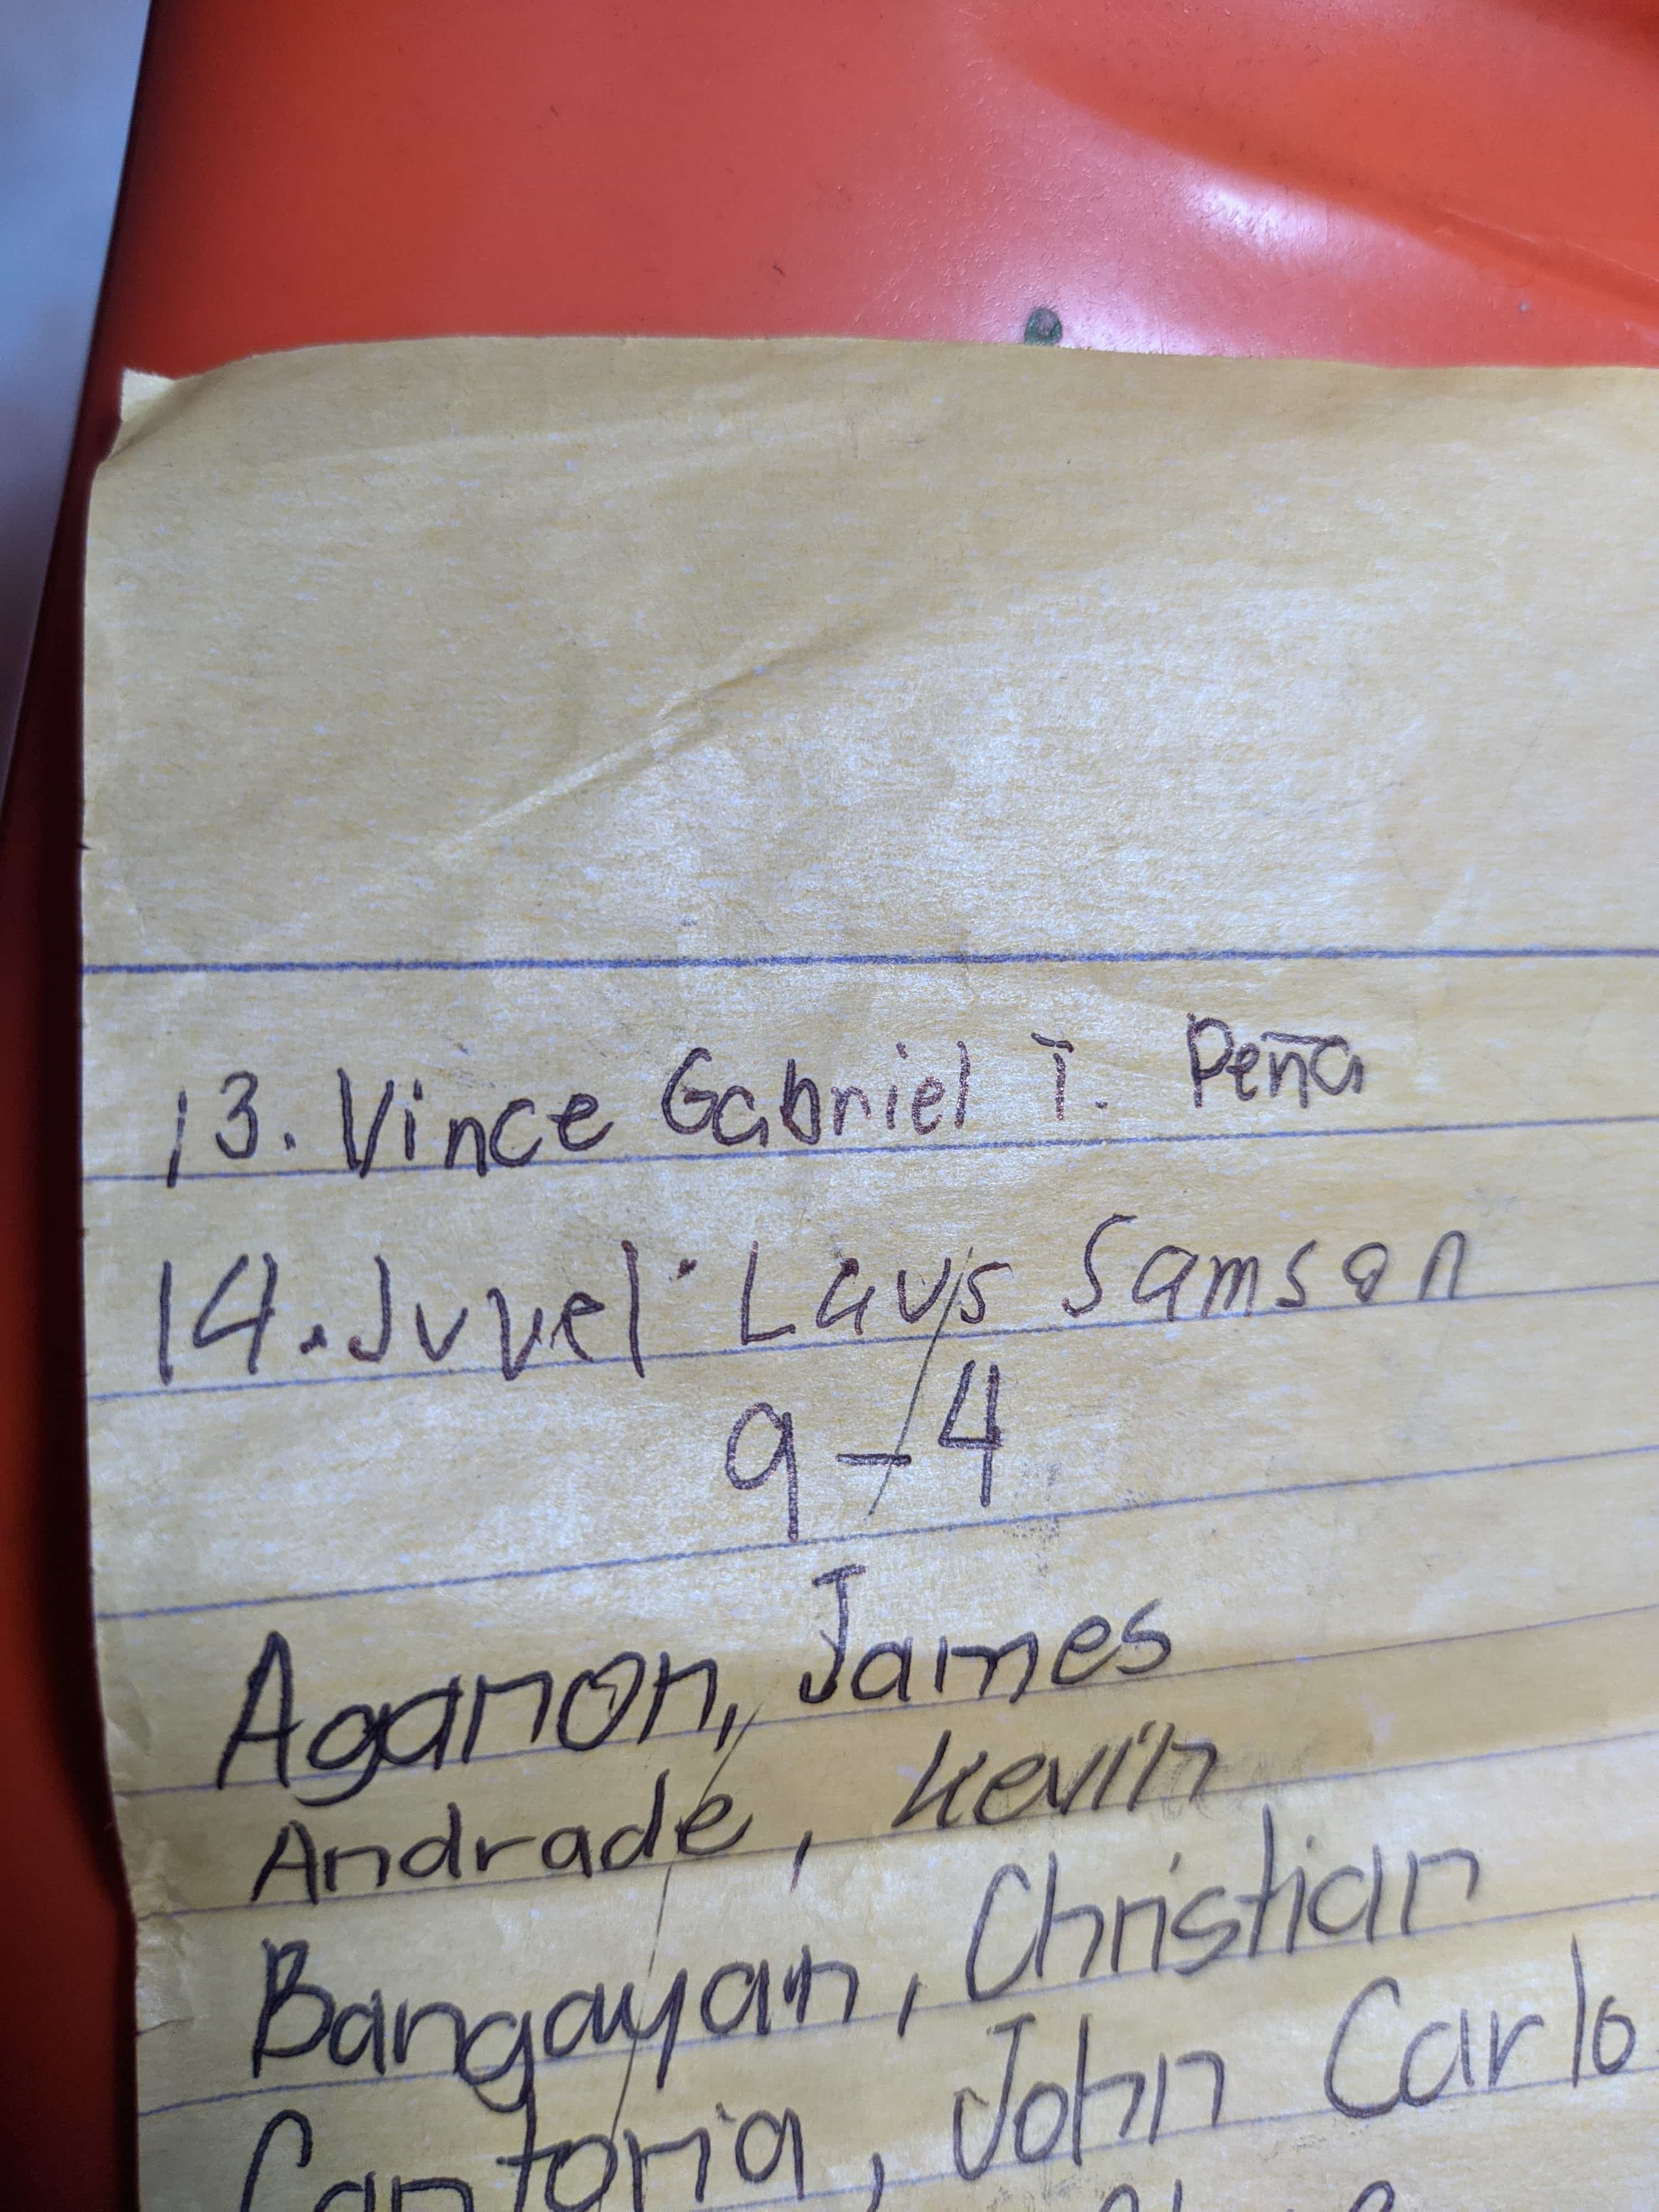 13. Vince Gabriel T. Peña
14. Juvel Laus Samson
9-4
Aganon, James
Andrade, Kevin
Bangayan, Christian
Cantoria, John Carlo